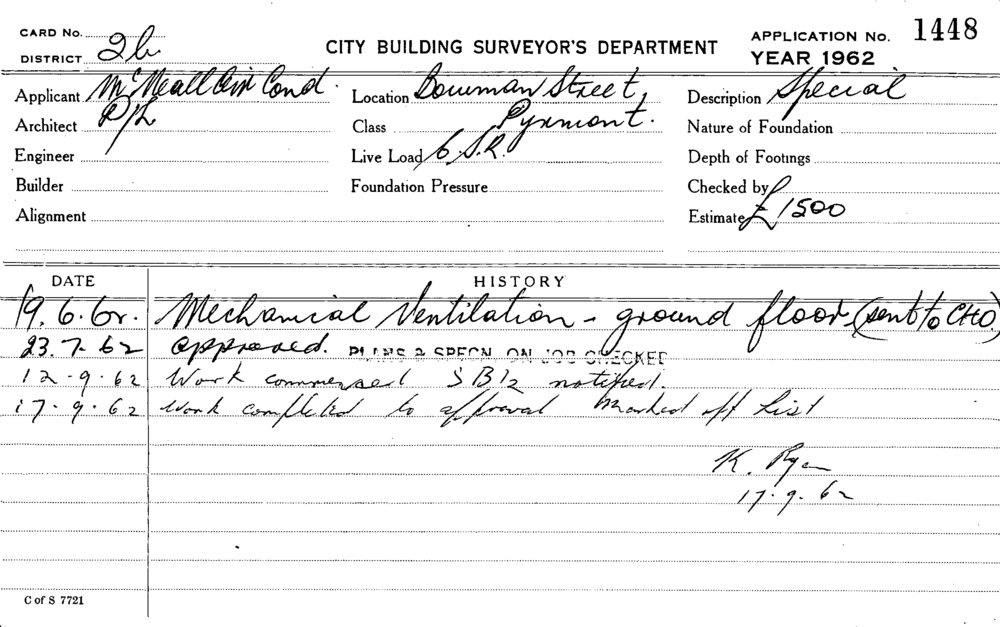 CARD No.
DISTRICT 2b
CITY BUILDING SURVEYOR'S DEPARTMENT
APPLICATION No. 1448
YEAR 1962
Applicant McNeall Air Cond.
Location Bowman Street,
Description Special
Architect P/L
Class Pyrmont.
Nature of Foundation
Engineer
Live Load 6.S.R.
Depth of Footings
Builder
Foundation Pressure
Checked by
Alignment
Estimate £1500
DATE HISTORY
19.6.62. Mechanical Ventilation - ground floor (sent to CHO.)
23.7.62 approved. PLANS & SPECN. ON JOB CHECKED
12.9.62 Work commenced notified.
17.9.62 Work completed to approval marked off List
K. Ryan
17.9.62
C of S 7721